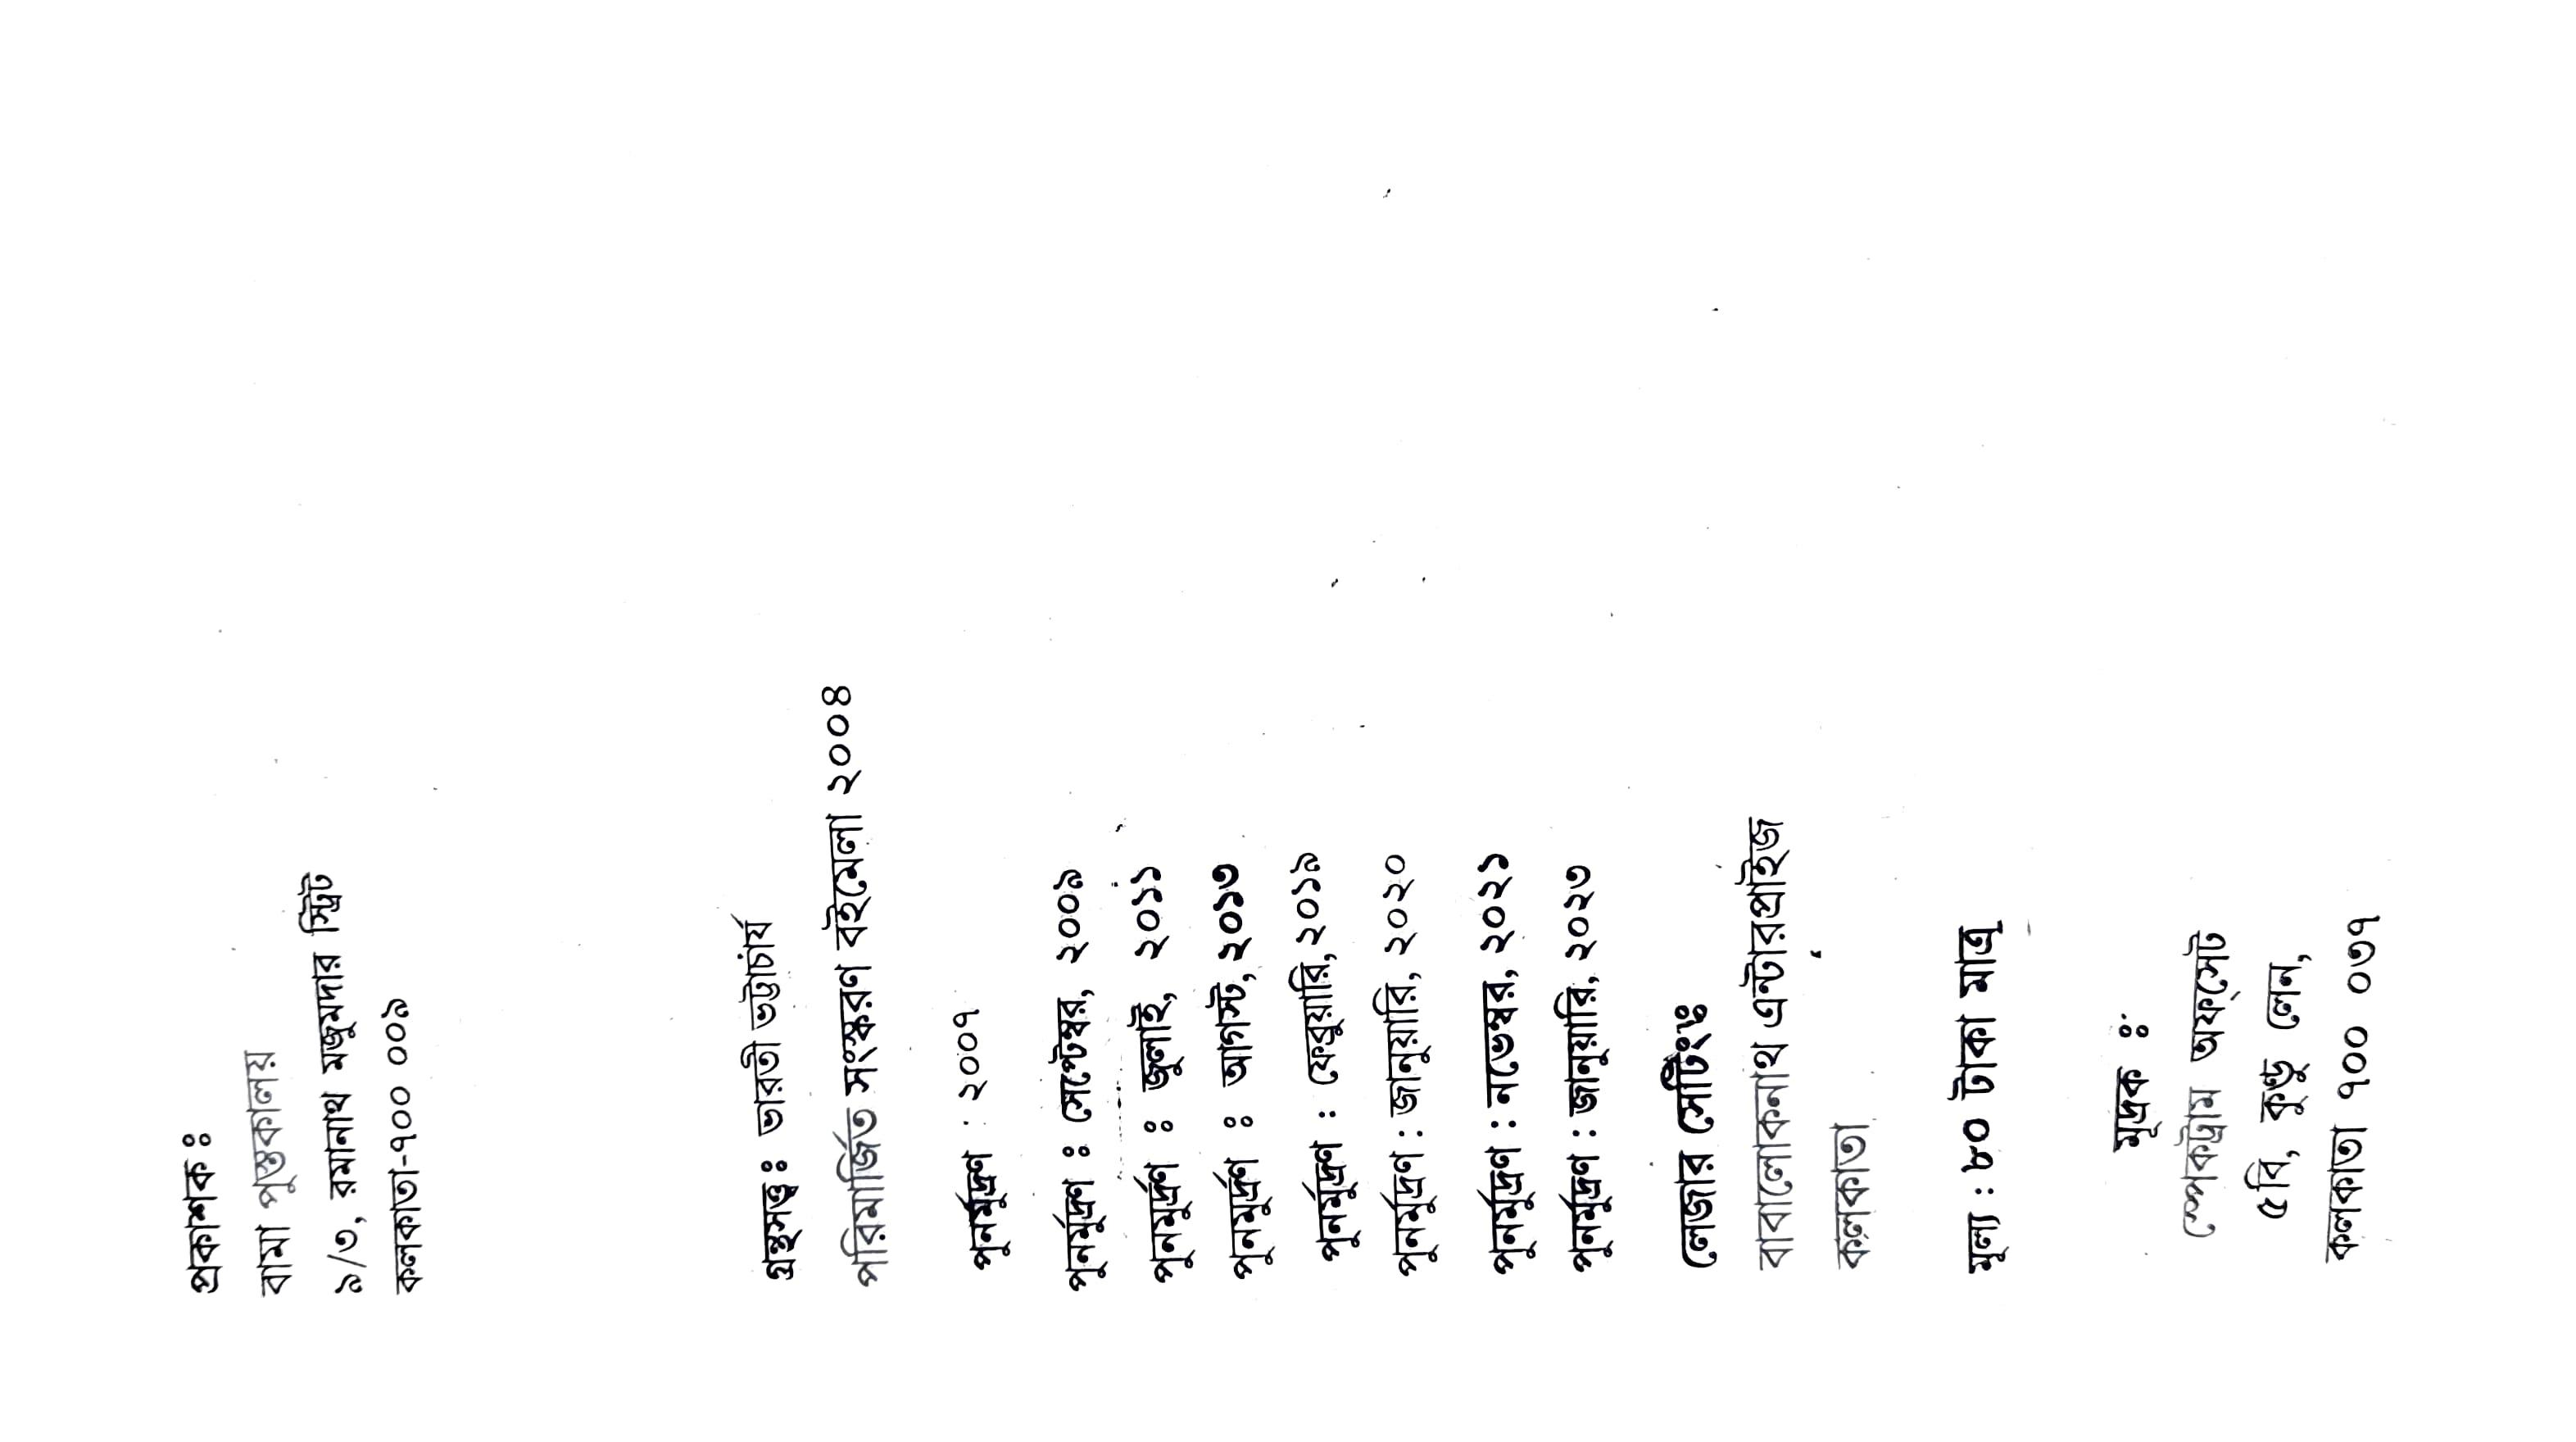 প্রকাশক ঃ
বামা পুস্তকালয়
৯/৩, রমানাথ মজুমদার স্ট্রিট
কলকাতা-৭০০ ০০৯
গ্রন্থসত্ত্ব ঃ ভারতী ভট্টাচার্য
পরিমার্জিত সংস্করণ বইমেলা ২০০৪
পুনর্মুদ্রণ : ২০০৭
পুনর্মুদ্রণ ঃ সেপ্টেম্বর, ২০০৯
পুনমুর্দ্রণ ঃ জুলাই, ২০১১
পুনমুর্দ্রণ ঃ আগস্ট, ২০১৩
পুনর্মুদ্রণ : ফেব্রুয়ারি, ২০১৯
পুনর্মুদ্রণ : জানুয়ারি, ২০২০
পুনর্মুদ্রণ : নভেম্বর, ২০২১
পুনর্মুদ্রণ : জানুয়ারি, ২০২৩
লেজার সেটিং ঃ
বাবালোকনাথ এন্টারপ্রাইজ
কলকাতা
মূল্য : ৮০ টাকা মাত্র
মূদ্রক ঃ
স্পেকট্রাম অফ্‌সেট
৫বি, কুণ্ডু লেন,
কলকাতা ৭০০ ০৩৭